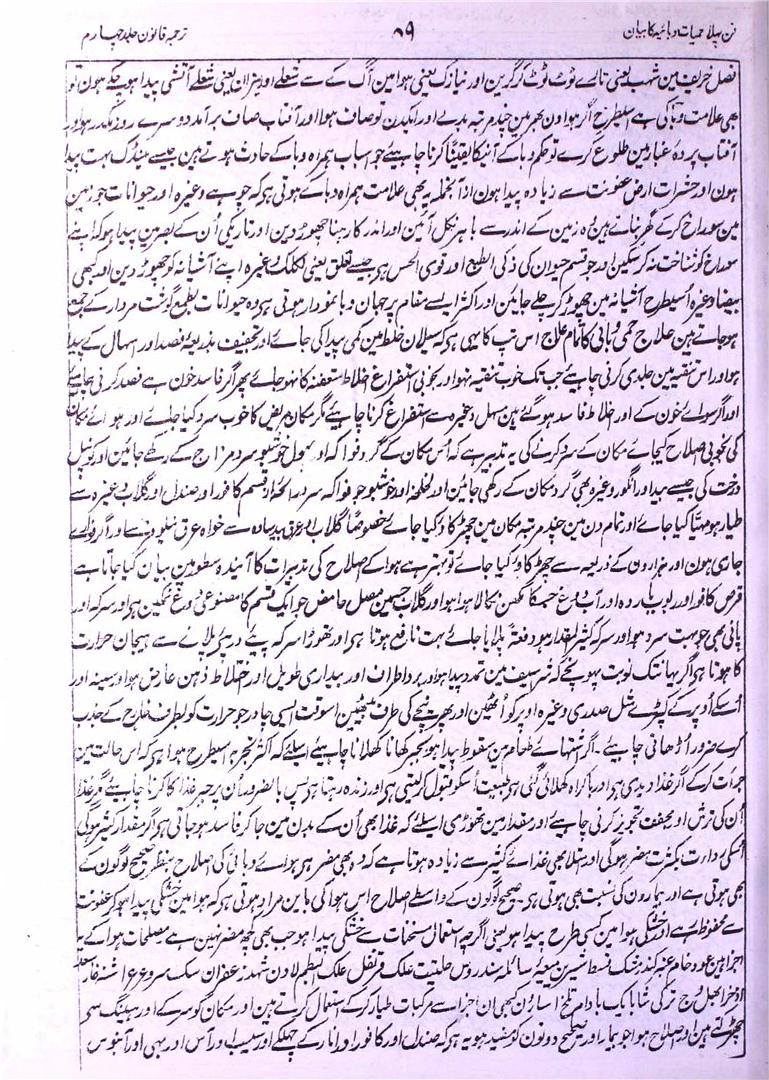 فن پہلا حمیات وبائیہ کا بیان ۸۹ ترجمہ قانون جلد چہارم
فصل خریف مین شہب یعنی تارے ٹوٹ ٹوٹ کر گرین اور نیازک یعنی ہوا مین آگ کے سے شعلے اور یعنی شعلے آتشی پیدا ہو چکے ہون تو
بھی علامت وبا کی ہے اسیطرح اگر ہوا دن بھر مین چند مرتبہ بدلے اور ایکدن تو صاف ہو اور آفتاب صاف برآمد دوسرے روز مکدر ہو اور
آفتاب پردہ غبار مین طلوع کرے تو حکم وبا کے آنیکا یقیناً کرنا چاہیئے جو اسباب ہمراہ وبا کے حادث ہوتے ہین جیسے مینڈک بہت پیدا
ہون اور حشرات ارض عفونت سے زیادہ پیدا ہون ازانجملہ یہ بھی علامت ہمراہ وبا کے ہوتی ہی کہ چوہے وغیرہ اور حیوانات جو زمین
مین سوراخ کرکے گھر بناتے ہین وہ زمین کے اندر سے باہر نکل آئین اور اندر کا رہنا چھوڑ دین اور تاریکی اُن کے بصر مین پیدا ہو کہ اپنے
سوراخ کو شناخت نہ کر سکین اور جو قسم حیوان کی ذکی الطبع اور قوی الحس ہی جیسے لقلق یعنی لکلک وغیرہ اپنے آشیانہ کو چھوڑ دین اور کبھی
بیضہ وغیرہ اُسیطرح آشیانہ مین چھوڑ کر چلے جائین اور اکثر ایسے مقام پر جہان وبا نمودار ہوتی ہی وہ حیوانات بطمع گوشت مردار کے جمع
ہو جاتے ہین علاج حمی وبائی کا تمام علاج اس تپ کا یہی ہی کہ سیلان خلط مین کمی پیدا کی جائے اور تجفیف بذریعہ فصد اور اسہال کے پیدا
ہو اور اس تنقیہ مین جلدی کرنی چاہیئے جب تک خوب تنقیہ نہو اور بخوبی استفراغ اخلاط متعفنہ کا نہو جائے پھر اگر فاسد خون ہے فصد کرنی چاہیئے
اور اگر سوائے خون کے اور اخلاط فاسد ہو گئے ہین مسہل وغیرہ سے استفراغ کرنا چاہئے مگر مکان مریض کا خوب سرد کیا جائے اور ہوائے مکان
کی بخوبی اصلاح کیجائے مکان کے سرد کرنے کی یہ تدبیر ہے کہ اُس مکان کے گرد فواکہ اور پھول خوشبو سرد مزاج کے رکھے جائین اور کوپل
درخت کی جیسے بید اور انگور وغیرہ بھی گرد مکان کے رکھی جائین اور لخلخہ اور خوشبو جو فواکہ سرد الرائحہ از قسم کافور اور صندل اور گلاب وغیرہ سے
طیار ہو مہیا کیا جائے اور تمام دن مین چند مرتبہ مکان مین چھڑکاؤ کیا جائے خصوصاً گلاب اور عرق بید سادہ سے خواہ عرق نیلوفر سے اور اگر فوارے
جاری ہون اور ہزارون کے ذریعہ سے چھڑکاؤ کیا جائے تو بہتر ہے ہوا کے اصلاح کی تدبیرات کا آیندہ سطورمین بیان کیا جاتا ہے
قرص کافور اور ربوب باردہ اور آب دوغ جسکا مکھن نکالا ہوا ہو اور گلاب جسمین مصل حامض جو ایک قسم کا مصنوعی دوغ نمکین ہی اور سرکہ اور
پانی بھی جو بہت سرد ہو اور سرکہ کثیر المقدار ہو دفعۃً پلایا جائے بہت نافع ہوتا ہی اور تھوڑا سرکہ پے درپے پلانے سے ہیجان حرارت
کا ہوتا ہی اگر یہانتک نوبت پہونچے کہ شراسیف مین تمدد پیدا ہو اور برد اطراف اور بیداری طویل اور اختلاط ذہن عارض ہو اور سینہ اور
اُسکے اُوپر کے کپڑے مثل صدری وغیرہ اوپر کو اُٹھین اور پھر نیچے کی طرف بیٹھین اسوقت ایسی چادر جو حرارت کو بطرف خارج کے جذب
کرے ضرور اُڑھانی چاہیے۔ اگر اشتہائے طعام مین سقوط پیدا ہو بجبر کھانا کھلانا چاہیئے اسلئے کہ اکثر تجربہ اسیطرح ہوا ہی کہ اس حالت مین
جرأت کرکے اگر غذا دیدی ہی اور باکراہ کھلائی گئی ہی طبیعت اُسکو قبول کر لیتی ہی اور زندہ رہتا ہی پس بالضرور اُن پر جبر غذا کا کرنا چاہیئے مگر غذا
اُن کی ترش اور مجفف تجویز کرنی چاہیے اور مقدار مین تھوڑی اسلئے کہ غذا بھی اُن کے بدن مین جا کر فاسد ہو جاتی ہی اگر مقدار کثیر ہوگی
اُسکی رداءت بکثرت مضر ہوگی اور امتلا بھی غذائے کثیر سے زیادہ ہوتا ہے کہ وہ بھی مضر ہی ہوائے وبائی کی اصلاح بنظر صحیح لوگون کے
بھی ہوتی ہے اور بیمارون کی نسبت بھی ہوتی ہی۔ صحیح لوگون کے واسطے اصلاح اس ہوا کی باین مراد ہوتی ہی کہ ہوا مین خشکی پیدا ہو کر عفونت
سے محفوظ رہے اور خشکی ہوا مین کسی طرح پیدا ہو یعنی اگرچہ استعمال مسخنات سے خشکی پیدا ہو جب بھی کچھ مضر نہین ہے مصلحات ہوا کے یہ
اجزا ہین عود خام عنبر کندر مشک قسط شیرین میعہ سائلہ سندروس حلتیت علک قرنفل علک البطم لادن شہد زعفران سک سرو عرعر اشنہ غار سعد
اذخر ابہل وج ترکی بادام تلخ اسارون کبھی ان اجزا سے مرکبات طیار کر کے استعمال کرتے ہین اور مکان کو سرکے اور ہینگ سے بھی
چھڑکتے ہین اور اصلاح ہوا جو بیمار اور صحیح دونون کو مفید ہو یہ ہی کہ صندل اور کافور اور انار کے چھلکے اور سیب اور آس اور بہی اور آبنوس